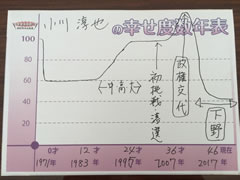 小川 淳也 の幸せ度数年表
100
80
60
40
20
0
中高大
初挑戦落選
政権交代
下野
0才 12才 24才 36才 46現在
1971年 1983年 1995年 2007年 2017年